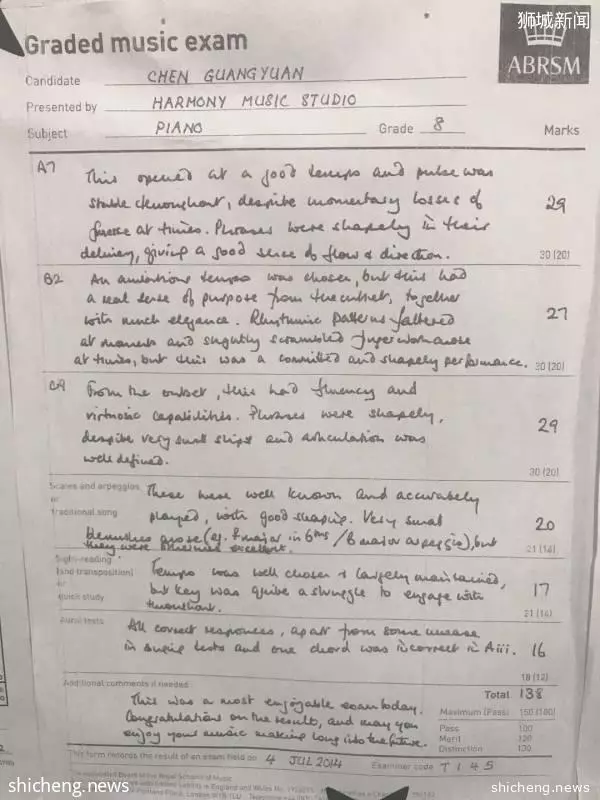 狮城新闻
Graded music exam
ABRSM
Candidate CHEN GUANGYUAN
Presented by HARMONY MUSIC STUDIO
Subject PIANO Grade 8 Marks
A7 This opened at a good tempo and pulse was
stable throughout, despite momentary losses of
finesse at times. Phrases were shapely in their 29
delivery, giving a good sense of flow & direction. 30 (20)
B2 An ambitious tempo was chosen, but this had
a real sense of purpose from the outset, together
with much elegance. Rhythmic patterns faltered 27
at moments and slightly scrambled fingerwork arose
at times, but this was a committed and shapely performance. 30 (20)
C9 From the outset, this had fluency and
virtuosic capabilities. Phrases were shapely,
despite very small slips and articulation was 29
well defined.
30 (20)
Scales and arpeggios These were well known and accurately
or
traditional song played, with good shaping. Very small 20
blemishes arose (eg. F major in 6ths / B major arpeggio), but
they were otherwise excellent. 21 (14)
Sight-reading Tempo was well chosen & largely maintained,
(and transposition)
or but key was quite a struggle to engage with 17
quick study throughout. 21 (14)
Aural tests All correct responses, apart from some unease
in singing tests and one chord was incorrect in Aiii. 16
18 (12)
Additional comments if needed Total 138
This was a most enjoyable exam today. Maximum (Pass) 150 (100)
Congratulations on the result, and may you Pass 100
enjoy your music making long into the future. Merit 120
Distinction 130
This form records the result of an exam held on 4 JUL 2014 Examiner code T145
The Associated Board of the Royal Schools of Music
shicheng.news
shicheng.news